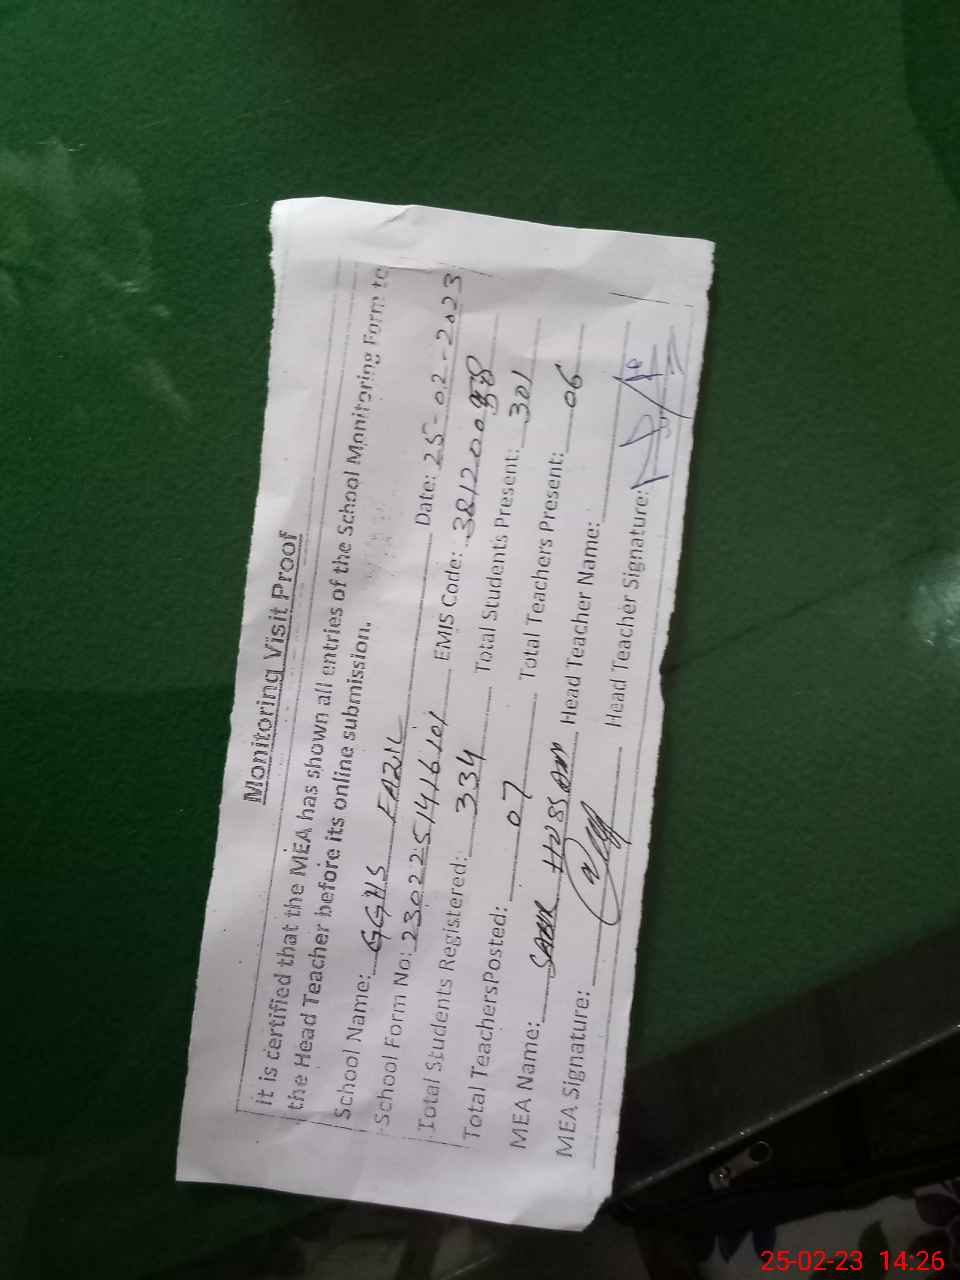 Monitoring Visit Proof
it is certified that the MEA has shown all entries of the School Monitoring Form to
the Head Teacher before its online submission.
School Name: GGHS FAZIL Date: 25-02-2023
School Form No: 2302251416101 EMIS Code: 38120098
Total Students Registered: 334 Total Students Present: 301
Total TeachersPosted: 07 Total Teachers Present: 06
MEA Name: HUSSAIN Head Teacher Name:
MEA Signature: Head Teacher Signature:
25-02-23 14:26